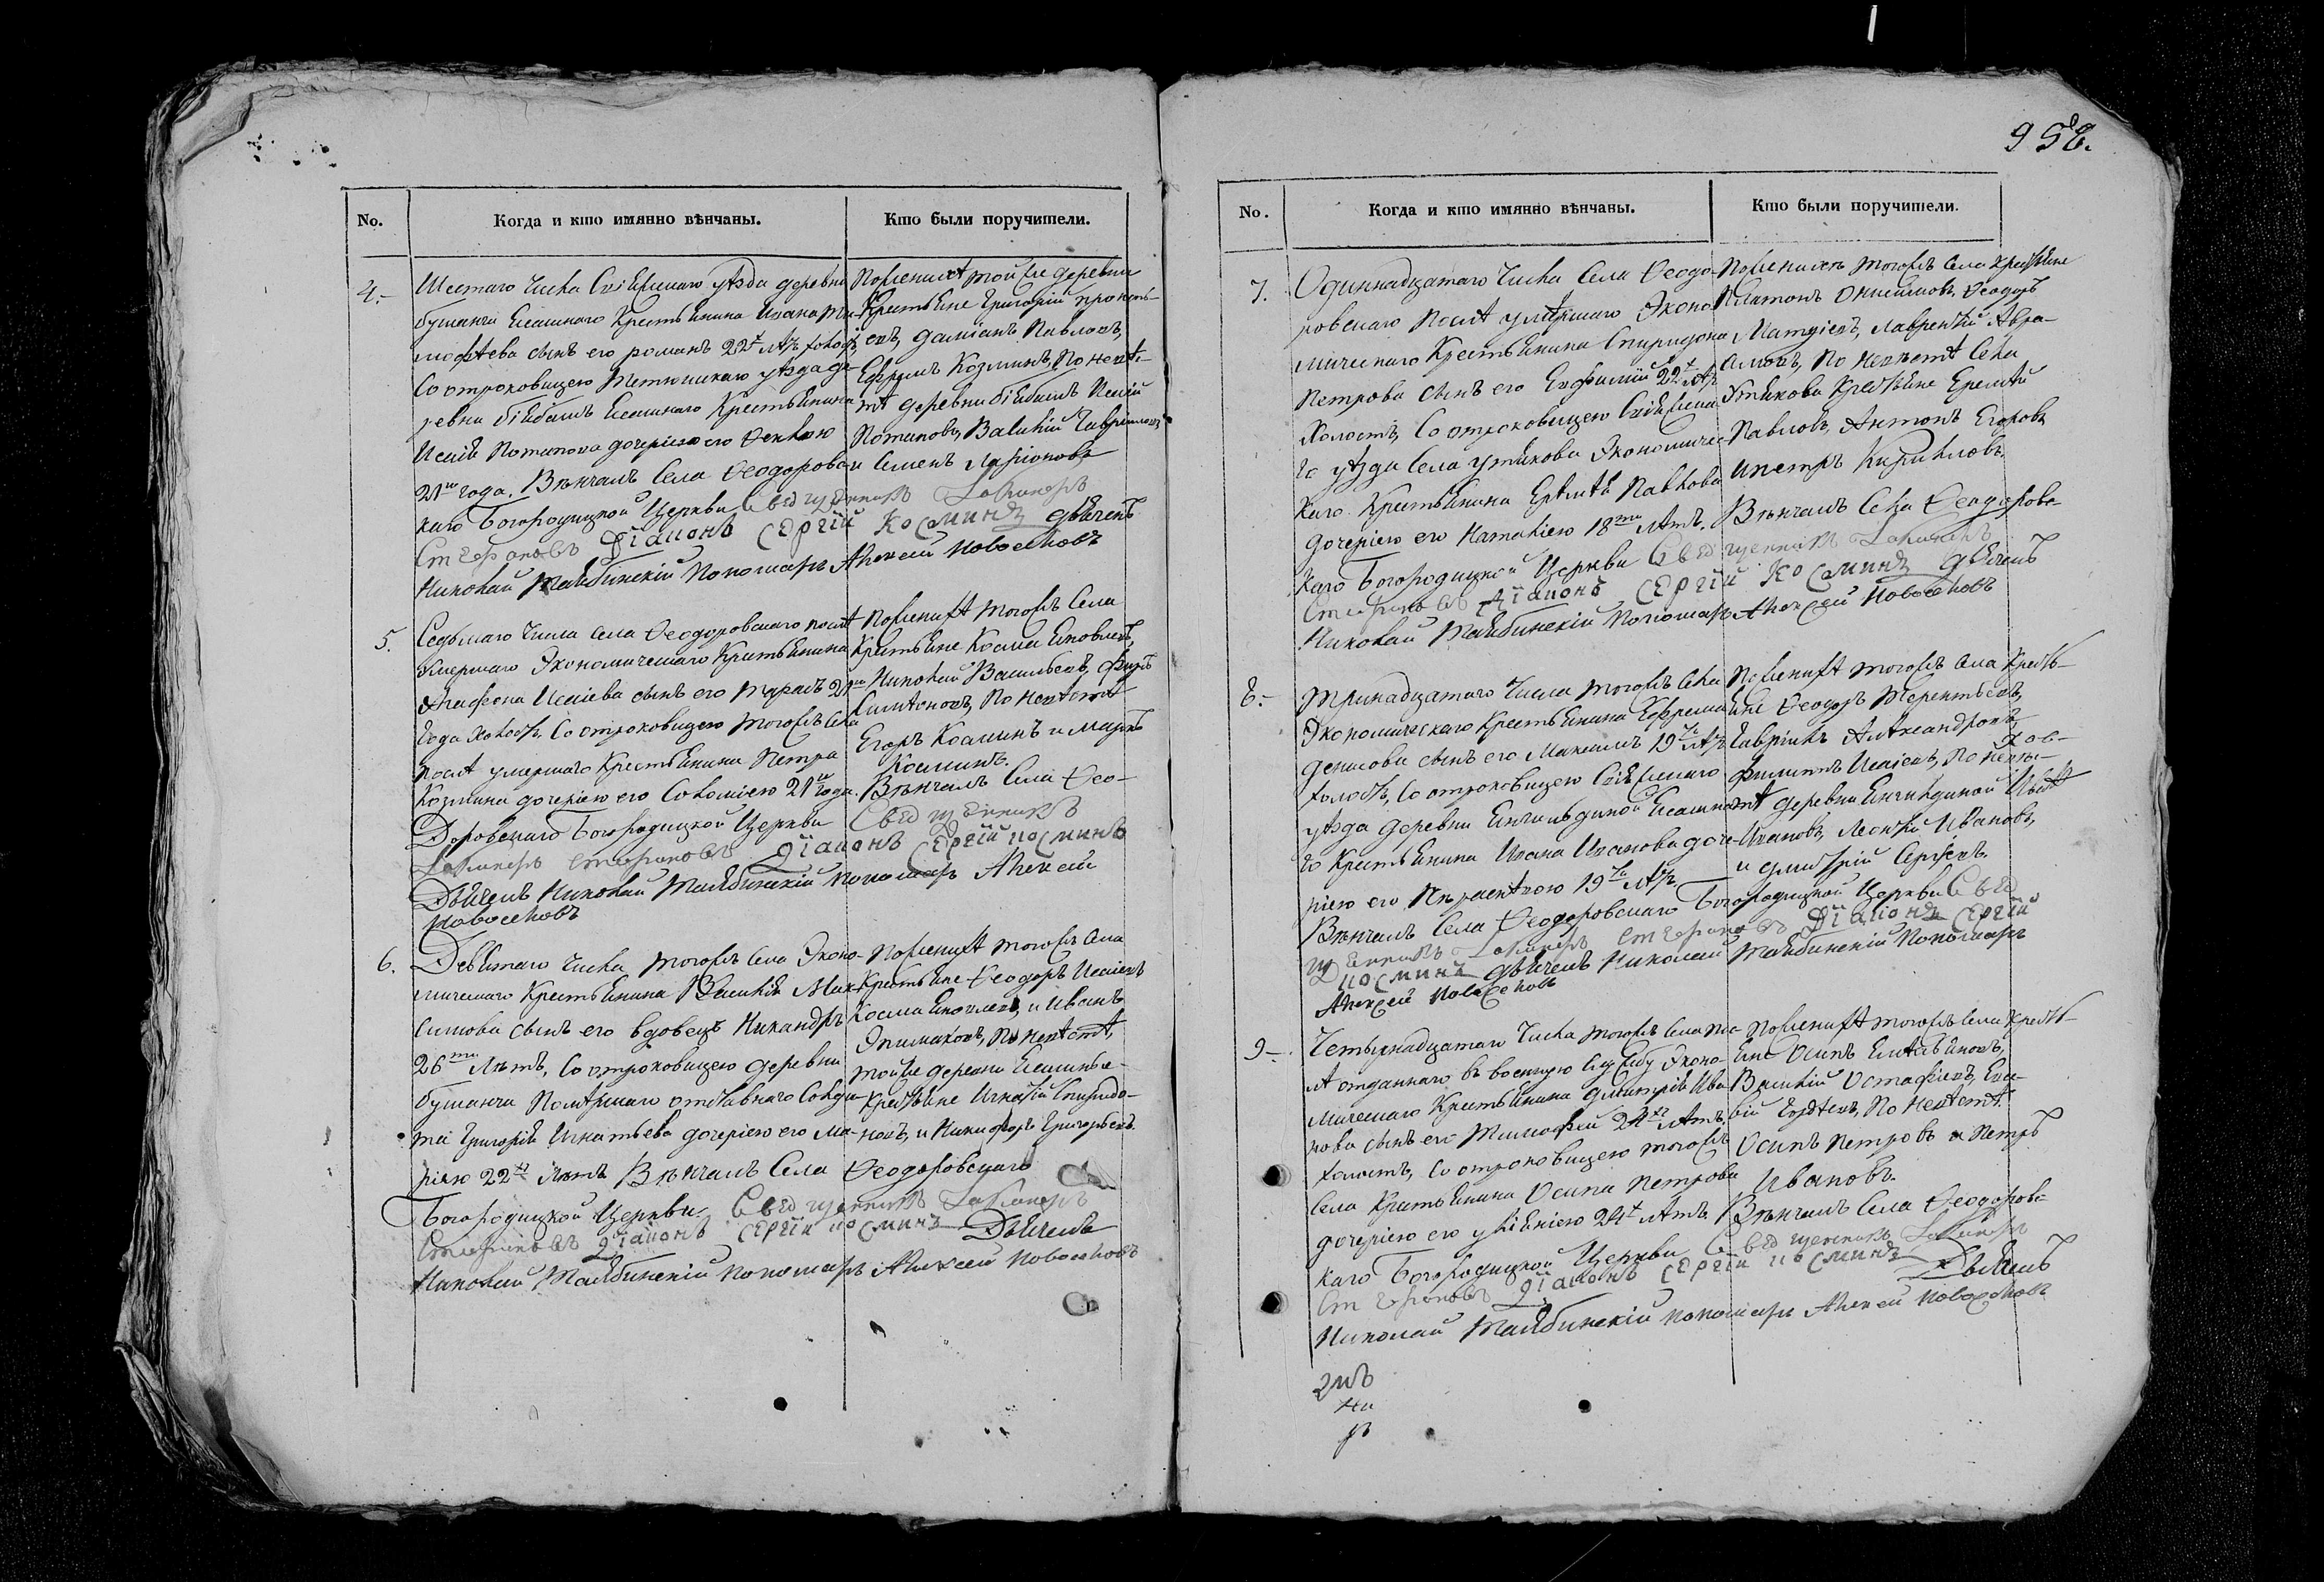 958.
No.
Когда и кто имянно вѣнчаны.
Кто были поручители.
4.
Шестаго числа Свіяжскаго уѣзда деревни
бушанчи Ясашнаго Крестьянина Ивана Ти-
мофѣева сынъ его романъ 22х лѣтъ холостъ,
Со отроковицею Тетюшскаго уѣзда де-
ревни Ясашнаго Крестьянина
Исаія Потапова дочерью его Феклою
21го года. Вѣнчалъ Села Ѳеодоровс-
каго Богородицкой Церкви Священникъ
Діаконъ Сергій Косминъ дьячекъ
Николай Таябинскій Пономарь Алексѣй Новоселовъ
По женихѣ той же деревни
Крестьяне Григорій
даміанъ Павловъ,
Ефремъ Козминъ, По невѣ-
стѣ деревни Исаій
Потаповъ, Василій Гавриловъ
и Семенъ Ларіоновъ
5.
Седьмаго числа Села Ѳеодоровскаго послѣ
умершаго Экономическаго Крестьянина
Агафона Исаіева сынъ его Маркъ 21го
Года холостъ, Со отроковицею тогожъ Села
послѣ умершаго Крестьянина Петра
Козмина дочерью его Соломіею 21го года.
Доровскаго Богородицкой Церкви Священникъ
Діаконъ Сергій Косминъ
Дьячекъ Николай Таябинскій пономарь Алексѣй
Новоселовъ
По женихѣ тогожъ Села
Крестьяне Косма Яковлевъ,
Николай Васильевъ,
По невѣстѣ
Егоръ Косминъ и Марко
Косминъ.
Вѣнчалъ Села Ѳео-
6.
Девятаго числа, тогожъ Села Эконо-
мическаго Крестьянина Василія Мак-
симова сынъ его вдовецъ Никандръ
26ти Лѣтъ, Со отроковицею деревни
бушанчи Послѣ умершаго отставнаго Солда-
та Григорія Игнатьева дочерью его Ма-
рією 22х лѣтъ Вѣнчалъ Села Ѳеодоровскаго
Богородицкой Церкви Священникъ
Діаконъ Сергій Косминъ Дьячекъ
Николай Таябинскій пономарь Алексѣй Новоселовъ
По женихѣ тогожъ Села
Крестьяне Ѳеодоръ Исаіевъ
Косма Яковлевъ, и Иванъ
По невѣстѣ,
той же деревни Ясашные
Крестьяне Игнатій Спиридо-
новъ, и Никифоръ Григорьевъ.
No.
Когда и кто имянно вѣнчаны.
Кто были поручители.
7.
Одиннадцатаго числа Села Ѳеодо-
ровскаго Послѣ умершаго Эконо-
мическаго Крестьянина Спиридона
Петрова сынъ его Евфимій 22х лѣтъ
Холостъ, Со отроковицею Свіяжска-
го уѣзда Села Утякова Экономичес-
каго Крестьянина Еремѣя Павлова
дочерью его Наталією 18ти лѣтъ. Вѣнчалъ Села Ѳеодоровс-
каго Богородицкой Церкви Священникъ
Діаконъ Сергій Косминъ дьячекъ
Николай Таябинскій Пономарь Алексѣй Новоселовъ
По женихѣ тогожъ Села Крестьяне
Платонъ Онисимовъ, Ѳеодоръ
Матѳіевъ, Лаврентій Авра-
амовъ, По невѣстѣ Села
Утякова Крестьяне Еремѣй
Павловъ, Антонъ Егоровъ
и петръ Кириловъ.
8.
Тринадцатаго числа тогожъ Села
Экономическаго Крестьянина Ефрема
денисова сынъ его Максимъ 19ть лѣтъ
холостъ, Со отроковицею Свіяжскаго
уѣзда деревни Ясашна-
го Крестьянина Ивана Иванова доче-
рью его Параскевою 19ть лѣтъ.
Вѣнчалъ Села Ѳеодоровскаго Богородицкой Церкви Свя-
щенникъ Діаконъ Сергій
Косминъ дьячекъ Николай Таябинскій Пономарь
Алексѣй Новоселовъ
По женихѣ тогожъ Села Кресть-
яне Ѳеодоръ Терентьевъ,
Гавріилъ Александровъ
Филиппъ Исаіевъ, По невѣ-
стѣ деревни
Ивановъ, Леонтій Ивановъ,
и дмитрій Сергѣевъ.
9
Четырнадцатаго числа тогожъ Села пос-
лѣ отданнаго въ военную службу Эконо-
мическаго Крестьянина дмитрія Ива-
нова сынъ его Тимофей 24х лѣтъ,
холостъ, Со отроковицею тогожъ
Села Крестьянина Осипа Петрова
дочерью его уліяніею 24х лѣтъ. Вѣнчалъ Села Ѳеодоровс-
каго Богородицкой Церкви Священникъ
Діаконъ Сергій Косминъ Дьячекъ
Николай Таябинскій пономарь Алексѣй Новоселовъ
По женихѣ тогожъ Села Кресть-
яне Осипъ Емельяновъ,
Василій По невѣстѣ
Осипъ Петровъ и Петръ
Ивановъ.